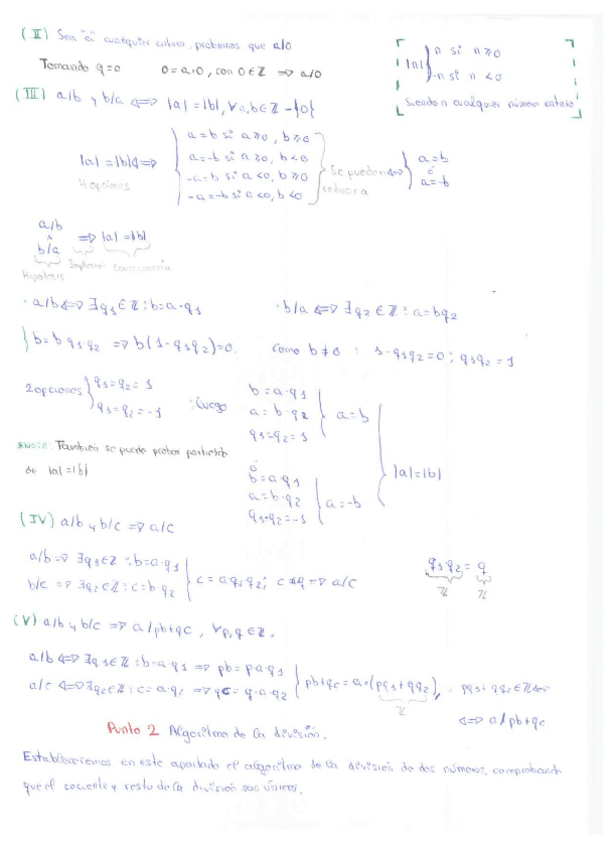 (II) Sea "a" cualquier entero, probemos que a/0
Tomando q=0   0=a·0, con 0∈ℤ ⇒ a/0
|n| { n si n≥0
-n si n<0
Siendo n cualquier número entero
(III) a/b y b/a ⇔ |a|=|b|, ∀a,b∈ℤ-{0}
|a|=|b| ⇔
4 opciones
a=b si a≥0, b≥0
a=-b si a≥0, b<0
-a=b si a<0, b≥0
-a=-b si a<0, b<0
Se pueden reducir a ⇔ { a=b
ó
a=-b
a/b
^
b/a
⇒ |a|=|b|
Hipótesis   Implicación   Consecuencia
· a/b ⇔ ∃q1∈ℤ : b=a·q1   · b/a ⇔ ∃q2∈ℤ : a=bq2
} b=b q1·q2 ⇒ b(1-q1q2)=0.   como b≠0 : 1-q1q2=0; q1q2=1
2 opciones { q1=q2=1
q1=q2=-1
; Luego
b=a·q1
a=b·q2
q1=q2=1
} a=b
ó
b=a·q1
a=b·q2
q1=q2=-1
} a=-b
} |a|=|b|
*NOTA: También se puede probar partiendo
de |a|=|b|
(IV) a/b y b/c ⇒ a/c
a/b ⇒ ∃q1∈ℤ : b=a·q1
b/c ⇒ ∃q2∈ℤ : c=b·q2
} c=aq1q2; c=aq ⇒ a/c
q1·q2 = q
ℤ   ℤ
(V) a/b y b/c ⇒ a/pb+qc, ∀p,q∈ℤ.
a/b ⇔ ∃q1∈ℤ : b=a·q1 ⇒ pb=p·a·q1
a/c ⇔ ∃q2∈ℤ : c=a·q2 ⇒ qc=q·a·q2
} pb+qc=a·(pq1+qq2), · pq1+qq2∈ℤ ⇔
ℤ
⇔ a/pb+qc
Punto 2 Algoritmo de la división.
Estableceremos en este apartado el algoritmo de la división de dos números, comprobando
que el cociente y resto de la división son únicos.